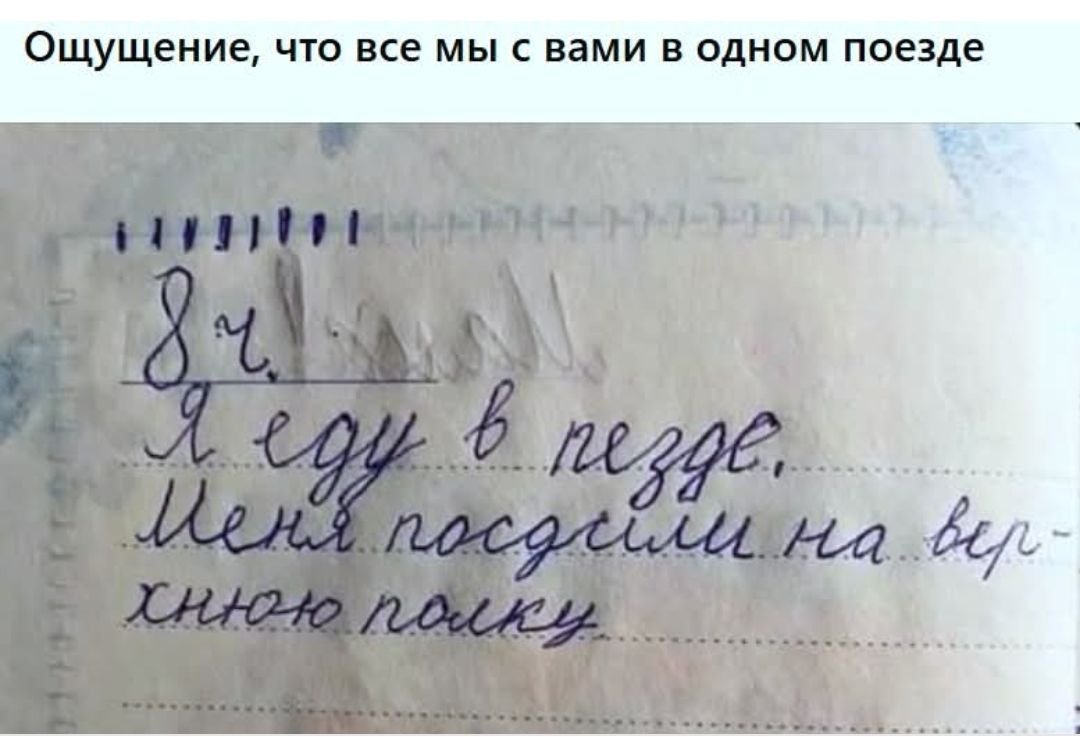 Ощущение, что все мы с вами в одном поезде
8 ч.
Я еду в пезде.
Меня посдили на вер-
хнюю полку